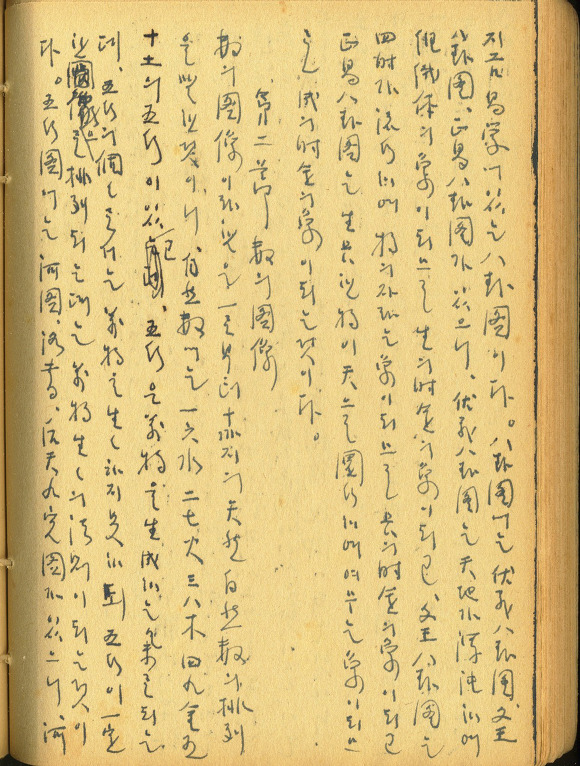 지고 易學에 있는 八卦圖이다。八卦圖에는 伏羲八卦圖、文王
八卦圖、正易八卦圖가 있으니、伏羲八卦圖는 天地가 渾沌하여
形體의 象이 되므로 生의 時金의 象이 되고、文王八卦圖는
四時가 流行하여 物의 자라는 象이 되므로 長의 時金의 象이 되고
正易八卦圖는 生長한 物이 天으로 圜行하여 여무는 象이 되므
로 成의 時金의 象이 되는 것이다。
第二節 數의 圖像
數의 圖像이라 함은 一로부터 十까지의 天然自然數의 排列
을 말한 것이니、自然數에는 一六水 二七火 三八木 四九金 五
十土의 五行이 있고 五行은 萬物을 生成하는 氣로 되는
데、五行의 個個로서는 萬物을 生生하지 못하고 五行이 一定
한 圖像으로 排列되는 데는 萬物生生의 法則이 되는 것이
다。五行圖에는 河圖、洛書、后天九宮圖가 있으니、河